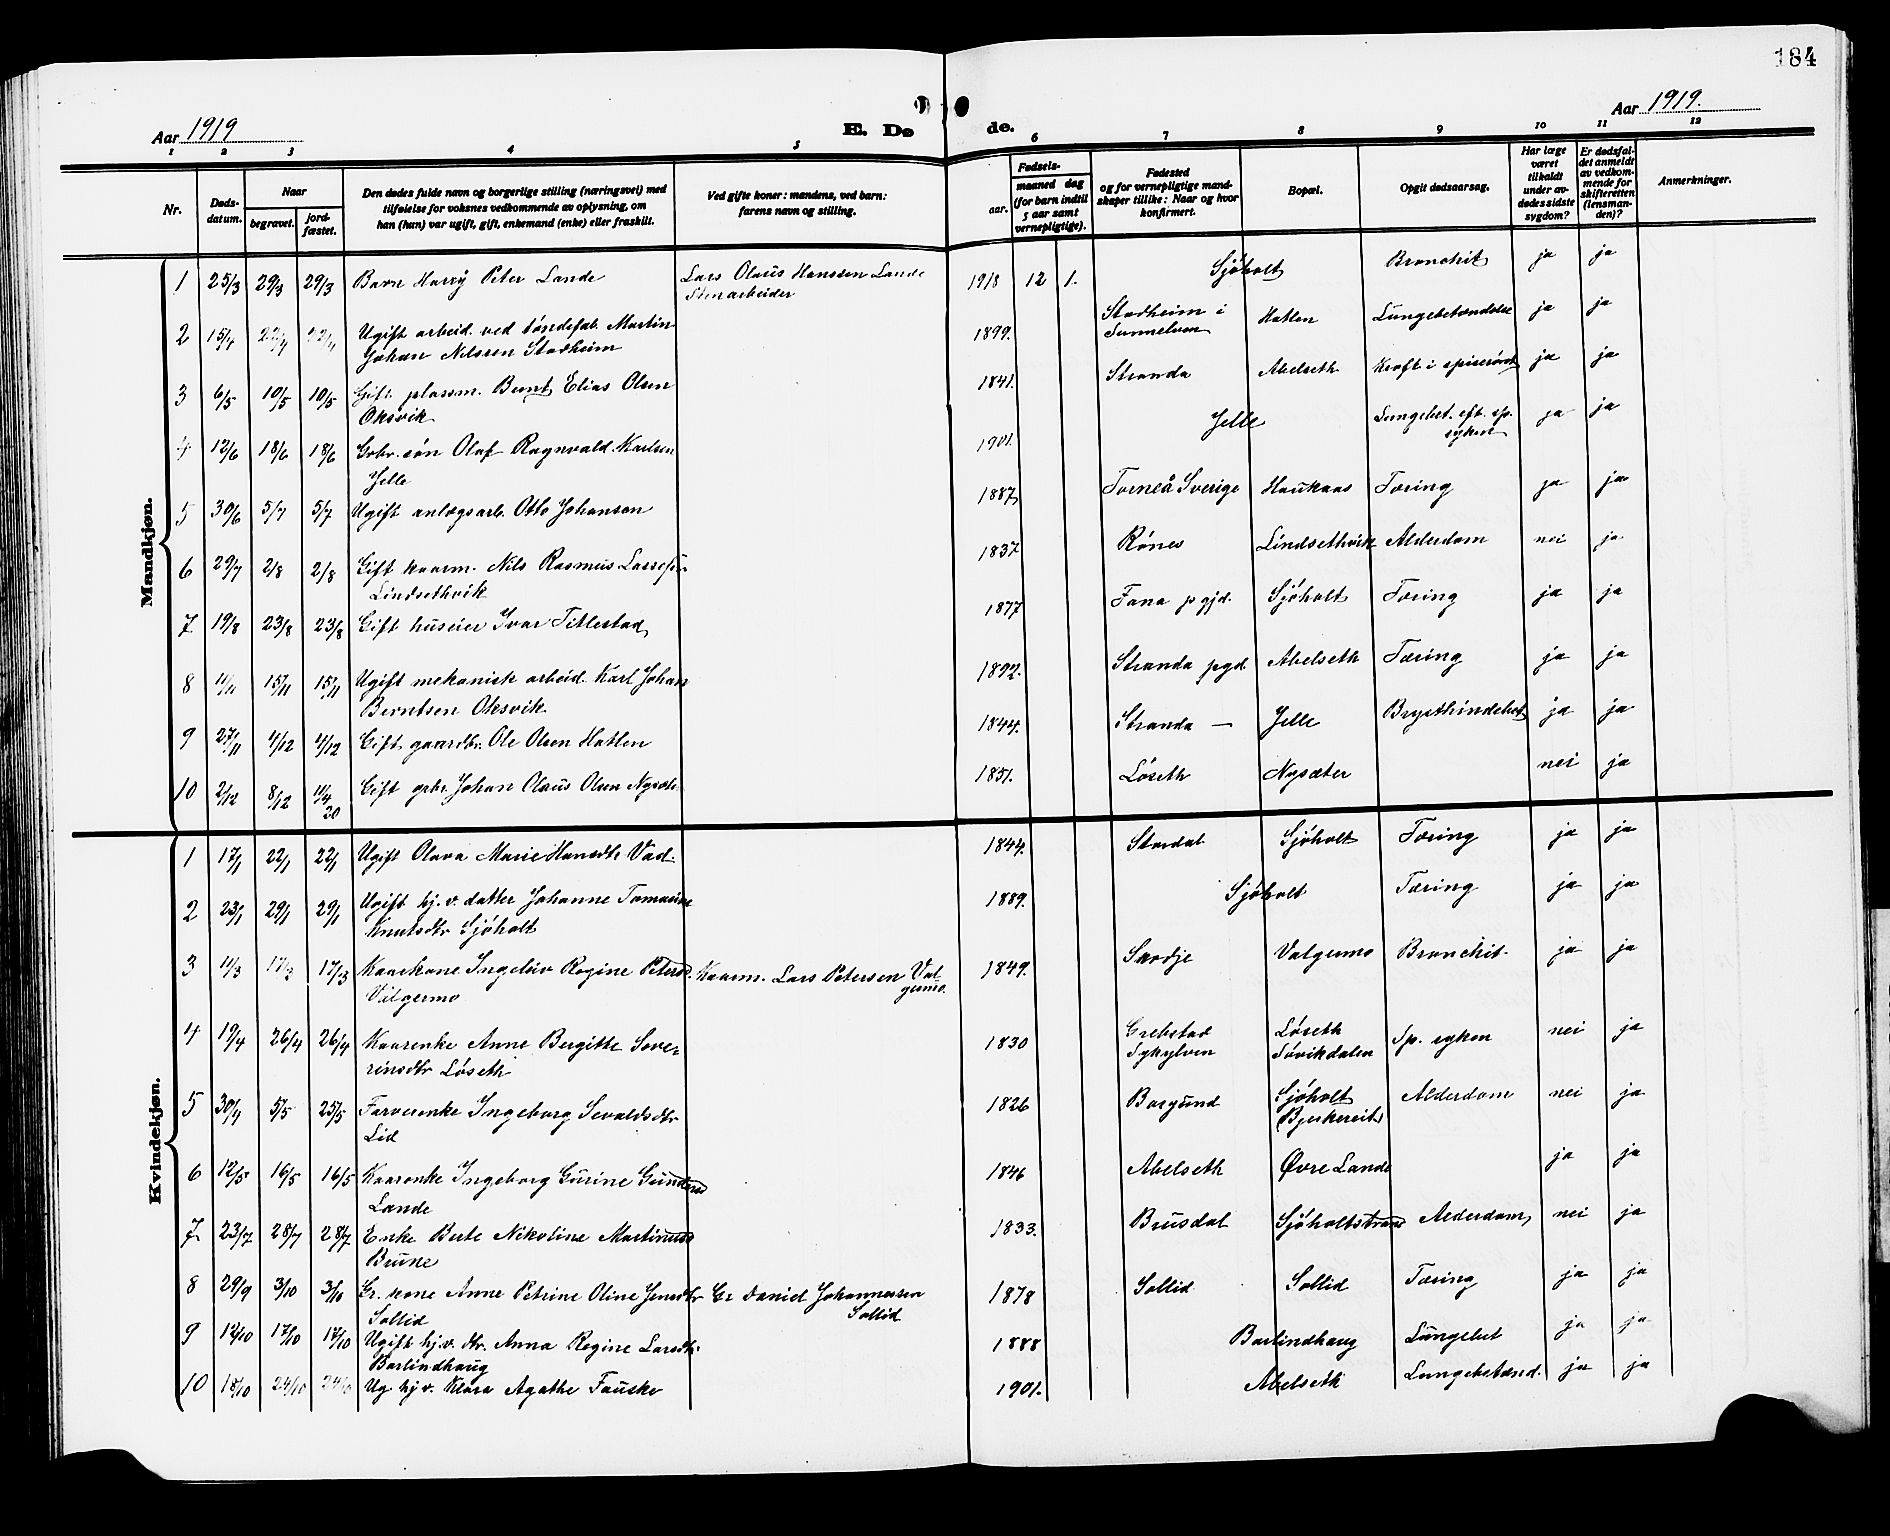 184
Aar 1919
E. Dø
de.
Aar 1919.
1 2 3 4 5 6 7 8 9 10 11 12
Nr.
Døds-
datum.
Naar
begravet.
jord-
fæstet.
Den dødes fulde navn og borgerlige stilling (næringsvei) med
tilføielse for voksnes vedkommende av oplysning, om
han (hun) var ugift, gift, enkemand (enke) eller fraskilt.
Ved gifte koner: mandens, ved barn:
farens navn og stilling.
Fødsels-
aar.
maaned dag
(for barn indtil
5 aar samt
vernepligtige).
Fødested
og for vernepligtige mand-
skaper tillike: Naar og hvor
konfirmert.
Bopæl.
Opgit dødsaarsag.
Har læge
været
tilkaldt
under av-
dødes sidste
sygdom?
Er dødsfal-
det anmeldt
av vedkom-
mende for
skifteretten
(lensman-
den)?
Anmerkninger.
Mandkjøn.
1 25/3 29/3 29/3 Barn Harry Peter Lande Lars Olaus Hanssen Lande 1918 12 1. Sjøholt Bronchit ja ja
Stenarbeider
2 15/4 22/4 22/4 Ugift arbeid. ved tøndefab. Martin 1899. Stadheim i Hatlen Lungebetændelse ja ja
Johan Nilssen Stadheim Sunnelven
3 6/5 10/5 10/5 Gift plassm. Bernt Elias Olsen 1841. Stranda Abelseth Kræft i spiserøret ja ja
Oksvik
4 12/6 18/6 18/6 Grbr. søn Olaf Ragnvald Karlsen 1901. Jelle Lungebet. eft. sp. ja ja
Jelle syken
5 30/6 5/7 5/7 Ugift anlægsarb. Otto Johansen 1887 Torneå Sverige Haukaas Tæring ja ja
6 29/7 2/8 2/8 Gift kaarm. Nils Rasmus Lassesen 1837 Rønes Lindsethvik Alderdom nei ja
Lindsethvik
7 19/8 23/8 23/8 Gift huseier Ivar Titlestad 1877 Fana pgjd. Sjøholt Tæring ja ja
8 11/11 15/11 15/11 Ugift mekanisk arbeid. Karl Johan 1892. Stranda pgd. Abelseth Tæring ja ja
Berntsen Oksvik
9 27/11 4/12 4/12 Gift gaardbr. Ole Olsen Hatlen 1844. Stranda — Jelle Brysthindebet ja ja
10 2/12 8/12 11/4 20 Gift grbr. Johan Olaus Olsen Nysæter 1851. Løseth Nysæter nei ja
Kvindekjøn.
1 17/1 22/1 22/1 Ugift Olava Marie Hansdtr Vad. 1844. Stordal Sjøholt Tæring ja ja
2 23/1 29/1 29/1 Ugift hj.v. datter Johanne Tomasine 1889. Sjøholt Tæring ja ja
Knutsdtr Sjøholt
3 11/3 17/3 17/3 Kaarkone Ingeleiv Regine Petersd. Kaarm. Lars Petersen Val- 1849. Skodje Valgermo Bronchit. ja ja
Valgermo germo.
4 19/4 26/4 26/4 Kaarenke Anne Bergitte Seve- 1830 Grebstad Løseth Sp. syken nei ja
rinsdtr Løseth Sykylven Søvikdalen
5 30/4 5/5 25/5 Farverenke Ingeborg Sevaldsdtr 1826 Borgund Sjøholt Alderdom nei ja
Lid (Bjerkereit)
6 12/5 16/5 16/5 Kaarenke Ingeborg Gurine Gundersd 1846 Abelseth Øvre Lande ja ja
Lande
7 23/7 28/7 28/7 Enke Berte Nikoline Martinusd 1833. Brusdal Sjøholtstrand Alderdom nei ja
Brune
8 29/9 3/10 3/10 Gr. kone Anne Petrine Oline Jensdtr Gr Daniel Johannessen 1878 Sollid Sollid Tæring ja ja
Sollid Sollid
9 12/10 17/10 17/10 Ugift hj.v. dtr. Anna Regine Larsdtr. 1888 Barlindhaug Lungebet ja ja
Barlindhaug
10 18/10 24/10 24/10 Ug. hj v. Klara Agathe Fauske 1901. Abelseth Lungebetænd. ja ja